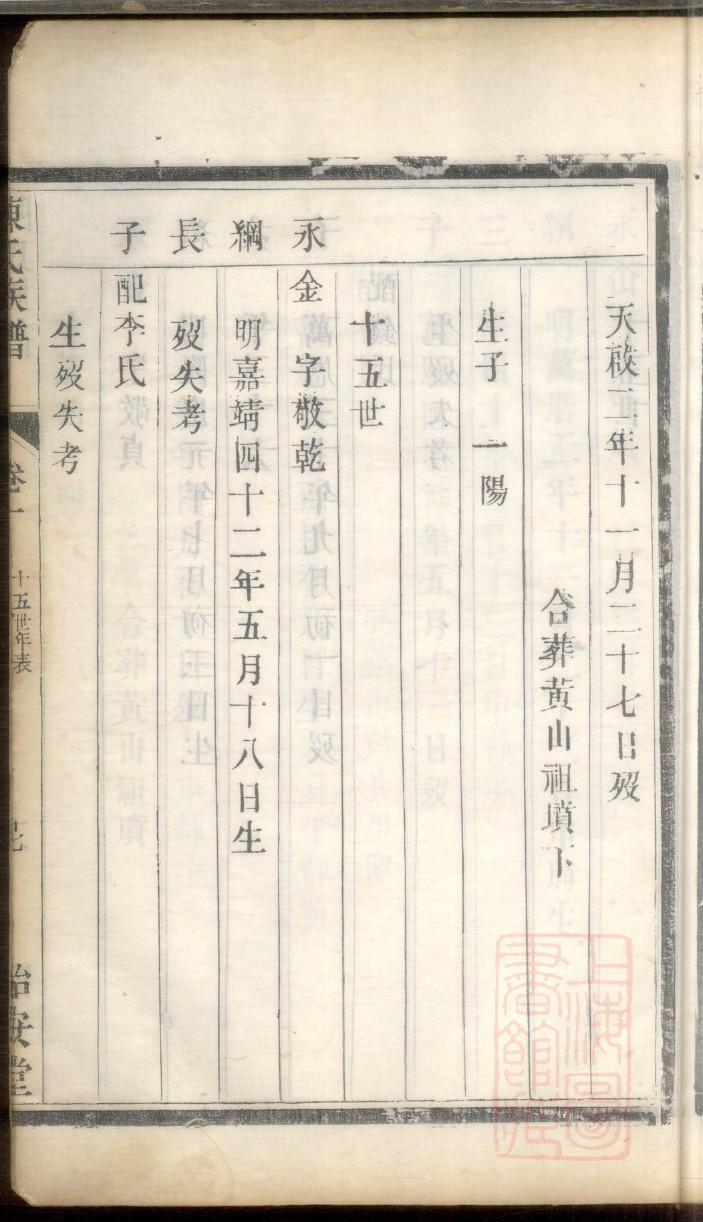 天啟二年十一月二十七日歿
合葬黃山祖墳下
生子一陽
十五世
永綱長子
金字敬乾
明嘉靖四十二年五月十八日生
歿失考
配李氏
生歿失考
陳氏族譜
卷一
十五世年表
怡安堂
上海圖書館藏